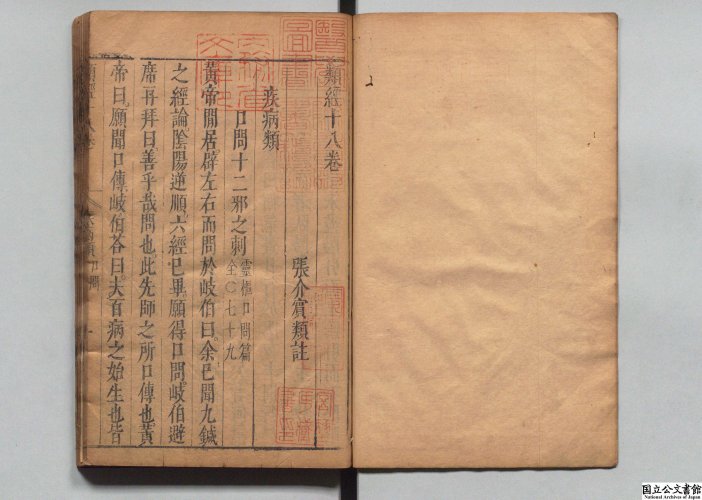 類經十八卷
張介賓類註
疾病類
口問十二邪之刺 靈樞口問篇 全〇七十九
黃帝閒居辟左右而問於岐伯曰余已聞九鍼
之經論陰陽逆順六經已畢願得口問岐伯避
席再拜曰善乎哉問也此先師之所口傳也黃
帝曰願聞口傳岐伯荅曰夫百病之始生也皆
國立公文書館
National Archives of Japan